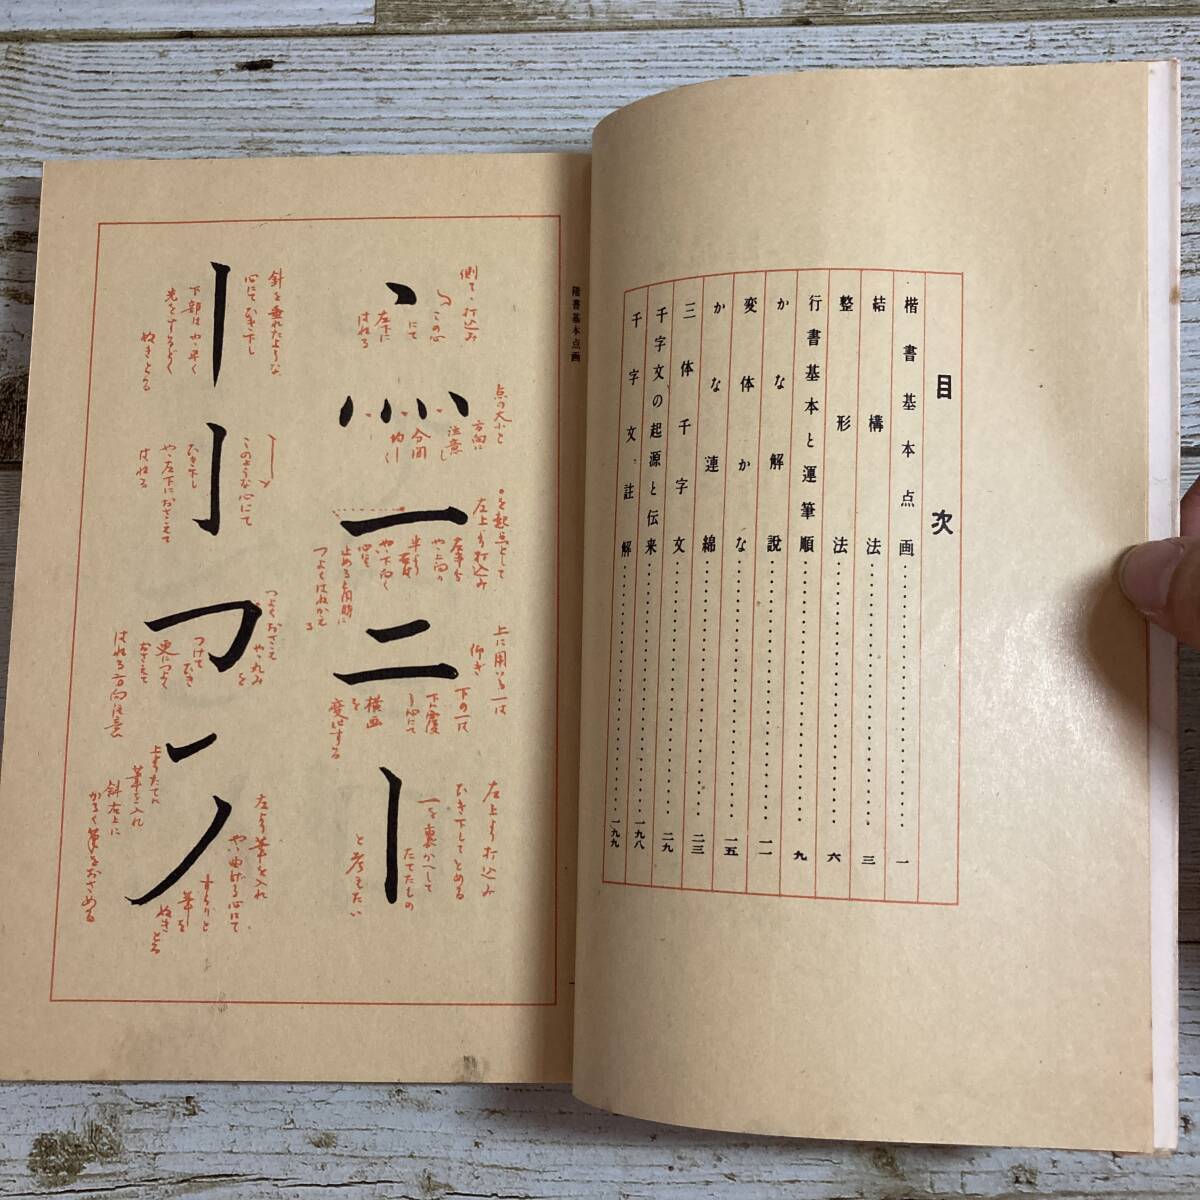 目次
楷書基本点画……一
結構法……三
整形法……六
行書基本と運筆順……九
かな解説……一一
変体かな……一五
かな連綿……二三
三体千字文……二九
千字文の起源と伝来……一九八
千字文註解……一九九
楷書基本点画
側て、打込み
この心
にて
左下に
はねる
点の大小と
方向に
注意し
合間
均しく
を起点として
左上より打込み
左半分
やゝ上向き
半より
右は
やゝ下向く
心にて
止めると同時に
つよくはねかへる
上に用いる一は
仰ぎ
下の一は
下に覆
う心にて
横画
を
変化する
左上より打込み
ひき下してとめる
一を裏かへして
たてたもの
と考えたい
針を垂れたような
心にてひき下し
下部はやゝ早く
先をするどく
ぬきとる
このような心にて
ひき下し
やゝ左下におさえて
はねる
つよくおさえ
やゝ丸み
を
つけて
ひき
更につよく
おさえて
はねる方向注意
上よりたてに
筆を入れ
斜右上に
かるく筆をおさめる
左より筆を入れ
やゝ曲げる心にて
すらりと
筆を
ぬきとる